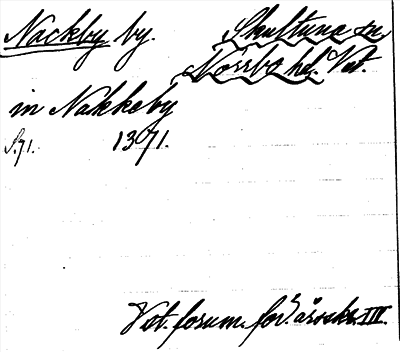 Nackby by. Skultuna sn,
Norrbo hd. Vst.
in Nakkeby
S. 71. 1371.
Vst. fornm. för. årsskr. III.